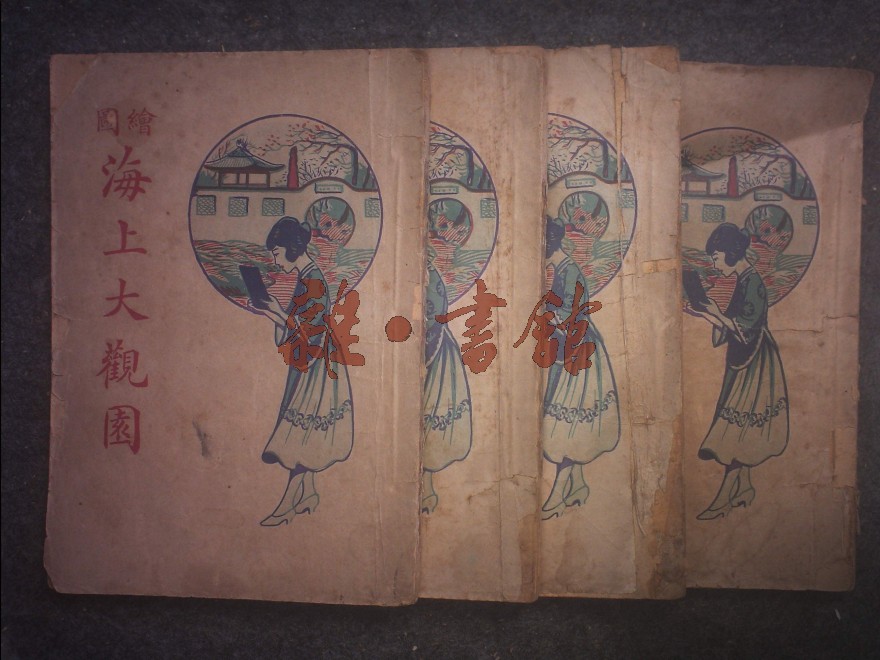 繪圖
海上大觀園
雜·書館